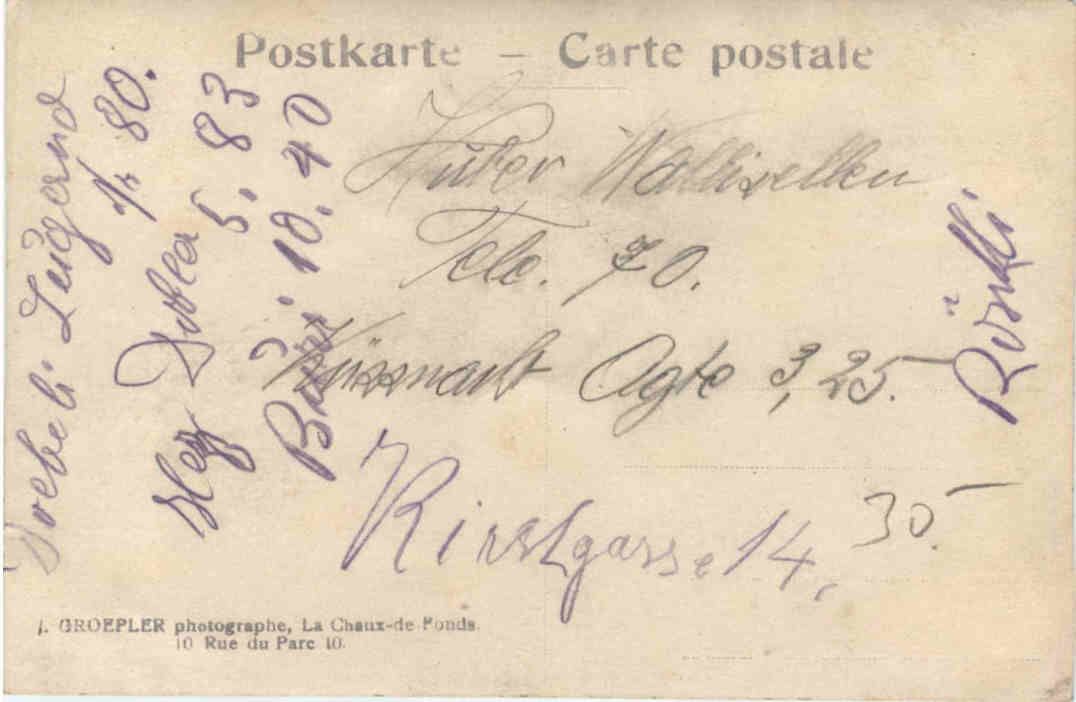 Postkarte – Carte postale
Huber Wallisellen
Tele. 70.
Küssnacht Agte 3,25.
Kirchgasse 14,
30
Luzern
1/2 80.
5, 83
10. 40
J. GROEPLER photographe, La Chaux-de Fonds.
10 Rue du Parc 10.